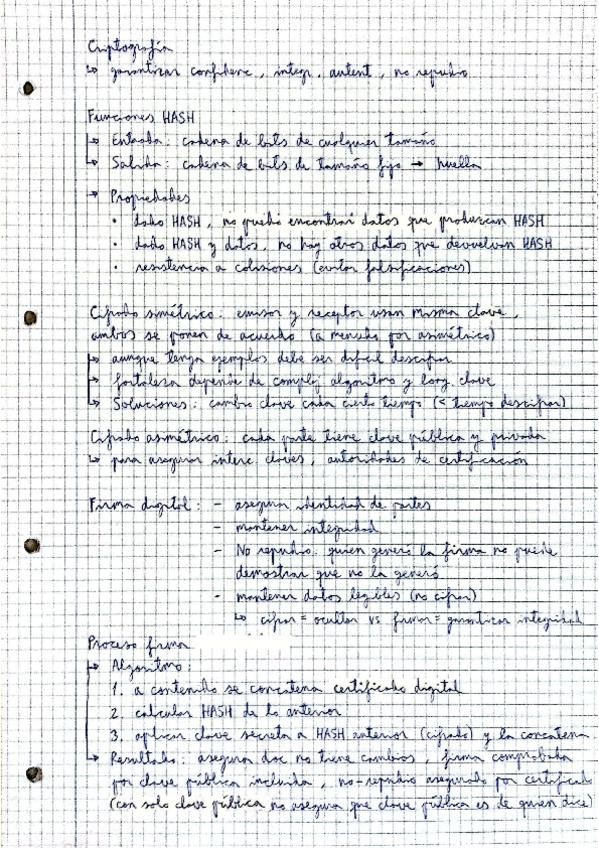 Criptografía
↳ garantizar confidenc, integr. autent, no repudio
Funciones HASH
↳ Entrada: cadena de bits de cualquier tamaño
↳ Salida: cadena de bits de tamaño fijo → huella
→ Propiedades
• dado HASH, no puedo encontrar datos que produzcan HASH
• dado HASH y datos, no hay otros datos que devuelvan HASH
• resistencia a colisiones (evitar falsificaciones)
Cifrado simétrico: emisor y receptor usan misma clave,
ambos se ponen de acuerdo (a menudo por asimétrico)
↳ aunque tenga ejemplos debe ser difícil descifrar
↳ fortaleza depende de complej algoritmo y long. clave
↳ Soluciones: cambio clave cada cierto tiempo (< tiempo descifrar)
Cifrado asimétrico: cada parte tiene clave pública y privada
↳ para asegurar interc. claves, autoridades de certificación
Firma digital: - asegura identidad de partes
- mantener integridad
- No repudio: quien generó la firma no puede
demostrar que no la generó
- mantener datos legibles (no cifrar)
↳ cifrar = ocultar vs firmar = garantizar integridad
Proceso firma
↳ Algoritmo:
1. a contenido se concatena certificado digital
2. calcular HASH de lo anterior
3. aplicar clave secreta a HASH anterior (cifrado) y la concatena
↳ Resultado: asegura doc no tiene cambios, firma comprobada
por clave pública incluida, no-repudio asegurado por certificado
(con solo clave pública no asegura que clave pública es de quien dice)